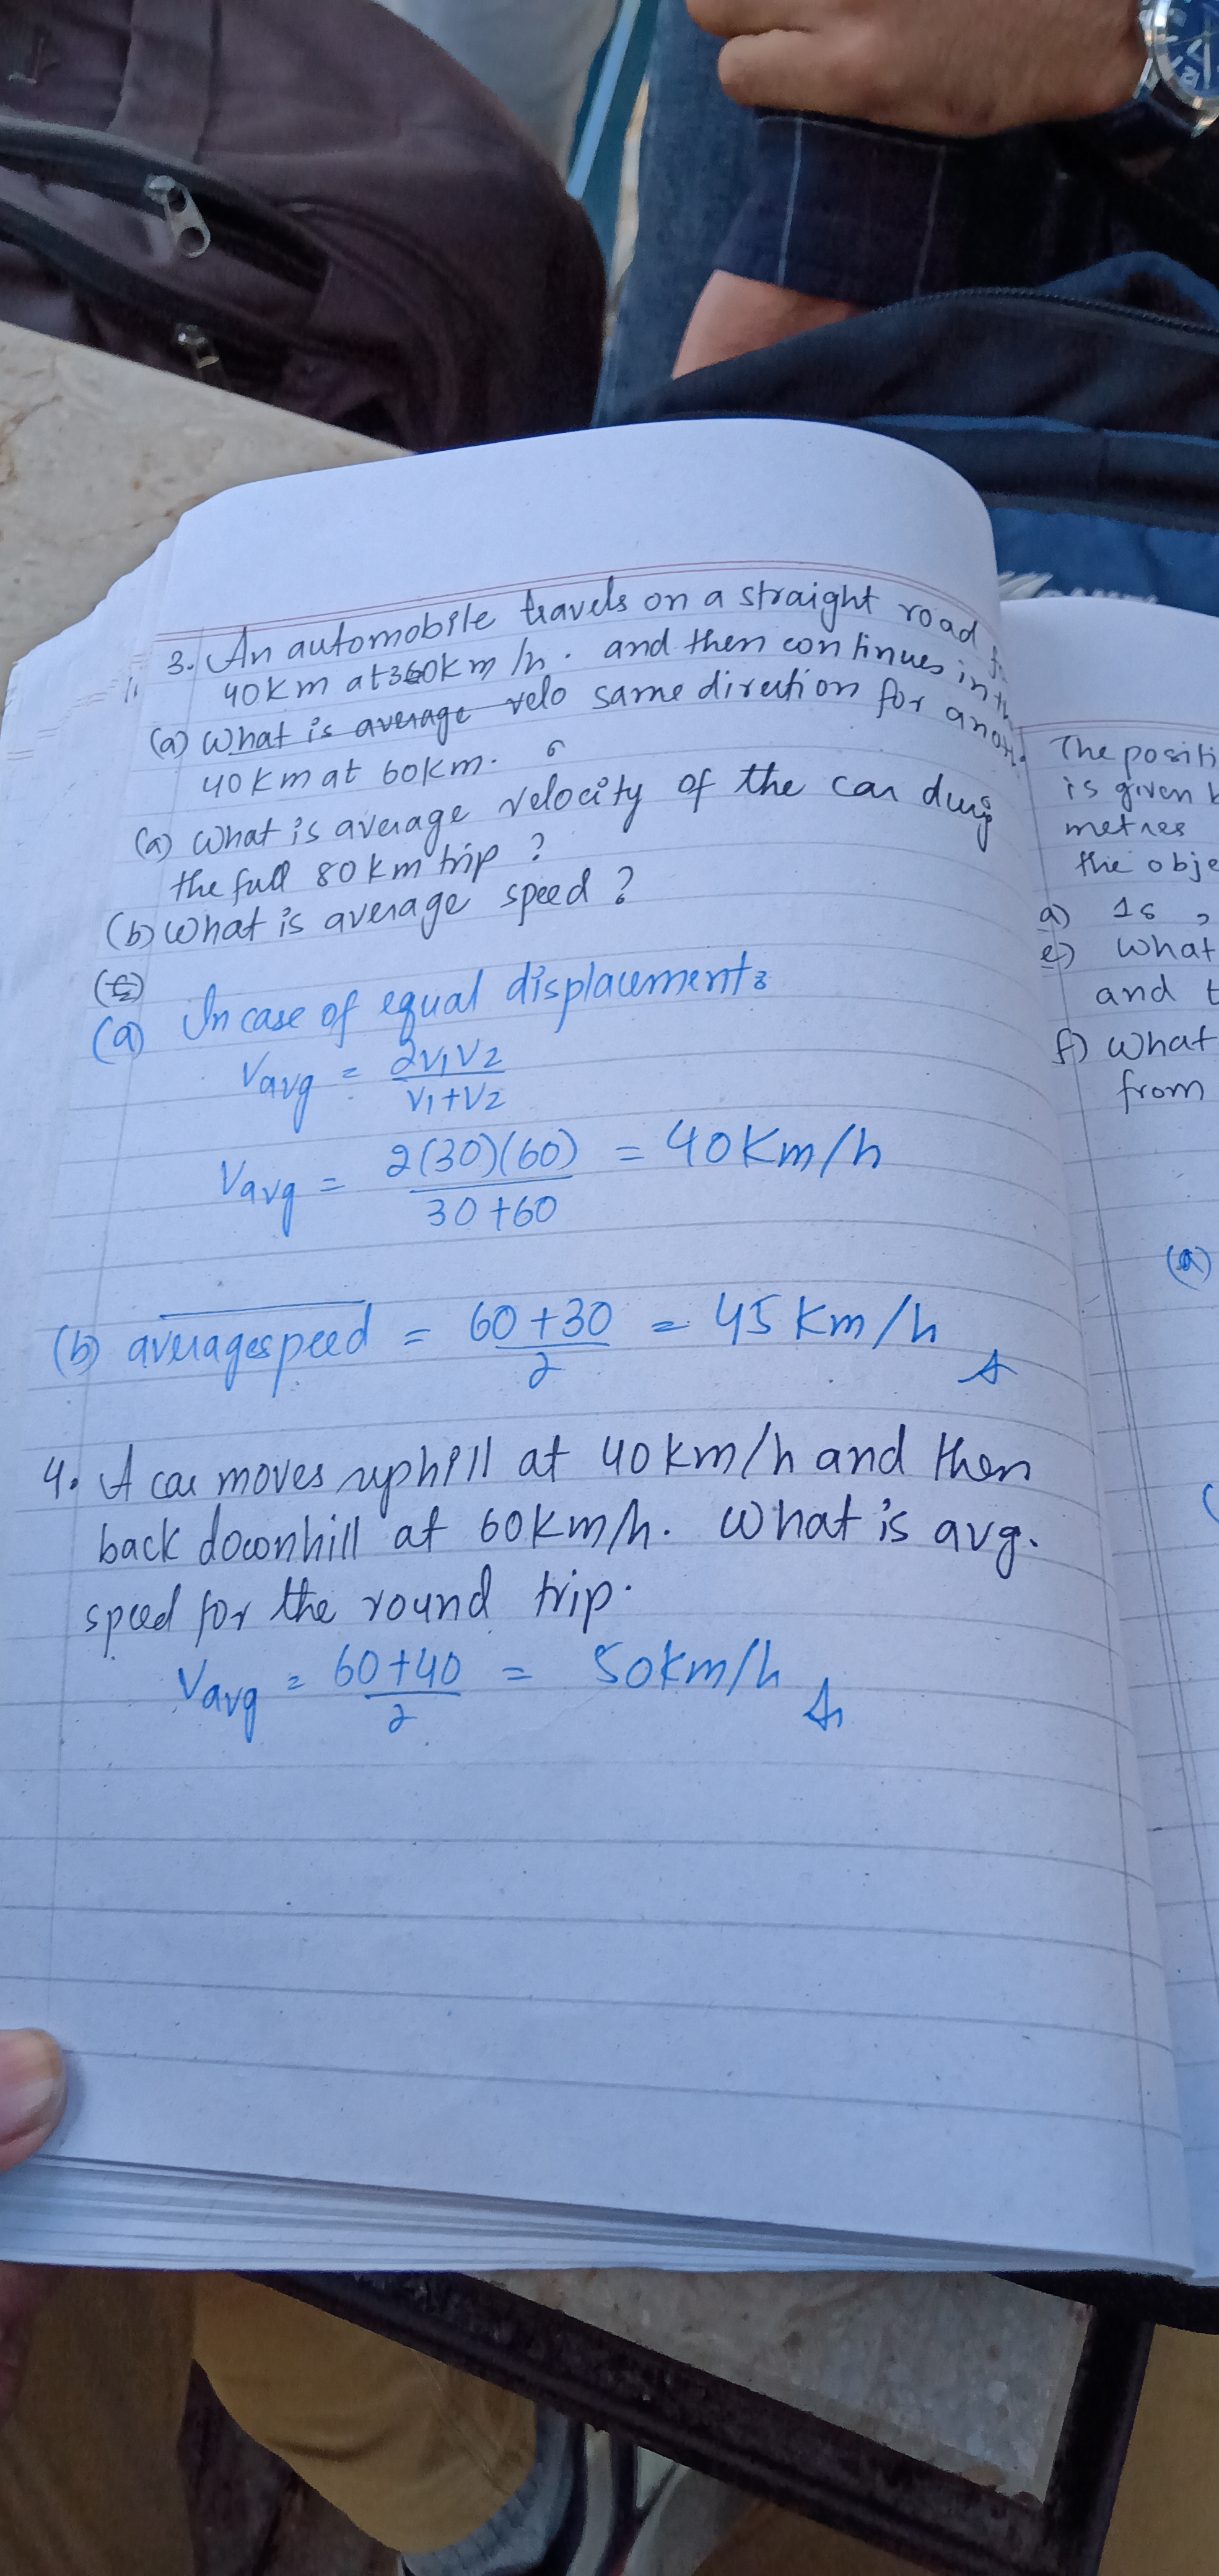 3. An automobile travels on a straight road
40km at 30km/h. and then continues in
(a) What is average velo same direction for
40km at 60km.
(a) What is average velocity of the car duing
the full 80km trip ?
(b) What is average speed ?
(a) In case of equal displacement:
Vavg = 2V1V2 / V1+V2
Vavg = 2(30)(60) / 30+60 = 40Km/h
(b) average speed = 60+30 / 2 = 45 Km/h
4. A car moves uphill at 40km/h and then
back downhill at 60km/h. What is avg.
speed for the round trip.
Vavg = 60+40 / 2 = 50km/h
The positi
is given
metres
the obje
a) 1s ,
e) What
and t
f) What
from
(a)